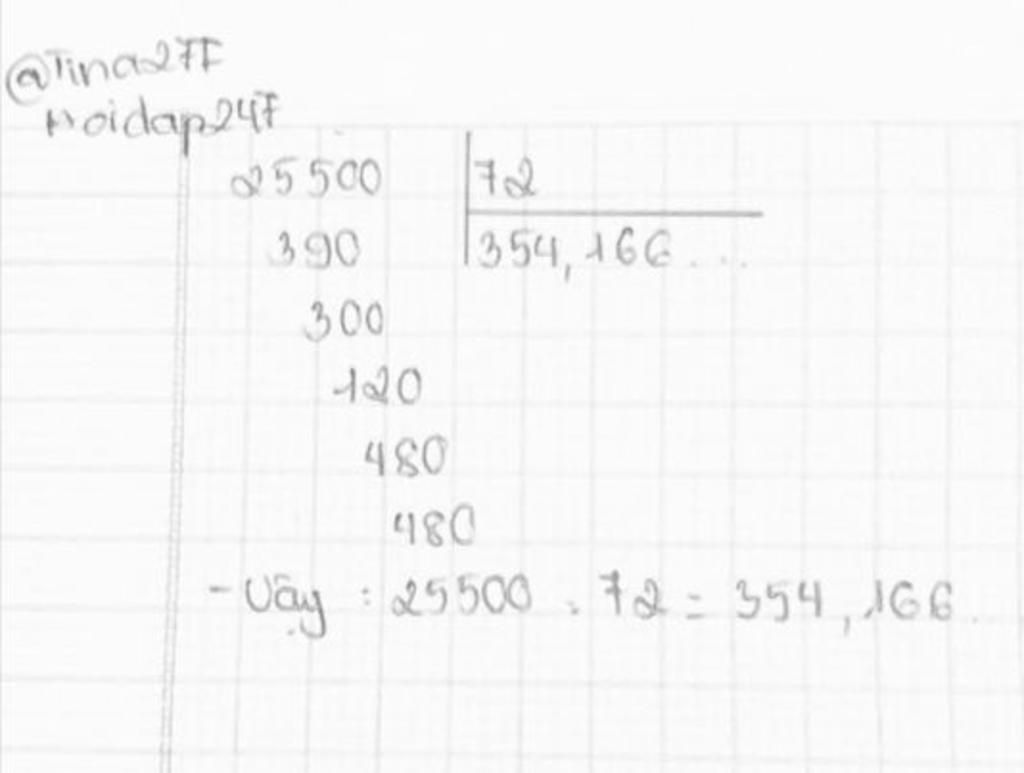 @Tina277
Hoidap247
25500 72
390 354,166...
300
120
480
480
- Vậy : 25500 : 72 = 354,166